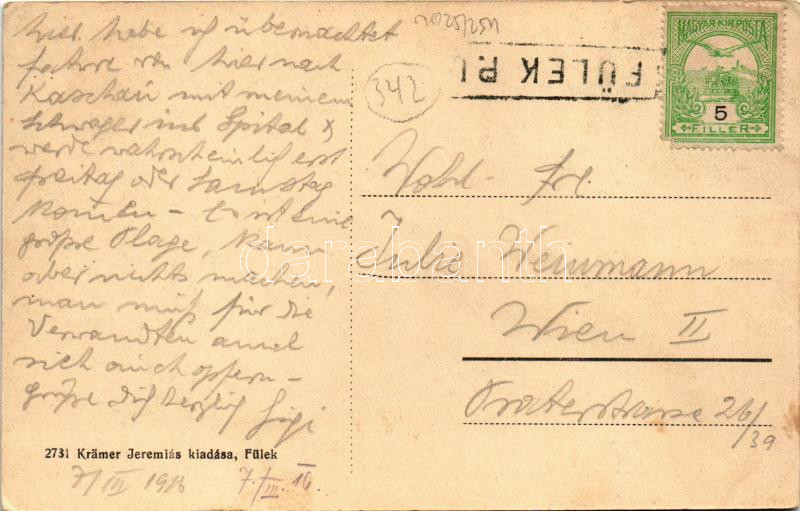 hier habe ich übernachtet
fahre von hier nach
Kaschau mit meinem
Schwager ins Spital &
werde wahrscheinlich erst
Freitag oder Samstag
kommen – Es ist eine
große Plage, kann
aber nichts machen,
man muß für die
Verwandten amal
sich auch opfern –
grüße dich herzlich Gigi
2731 Krämer Jeremiás kiadása, Fülek
7/III 1916 7./III. 16.
342
FÜLEK P.U
MAGYAR KIR. POSTA
5
FILLÉR
Wohl. Frl.
Weinmann
Wien II
Praterstrasse 26/
/39
darabanth.com